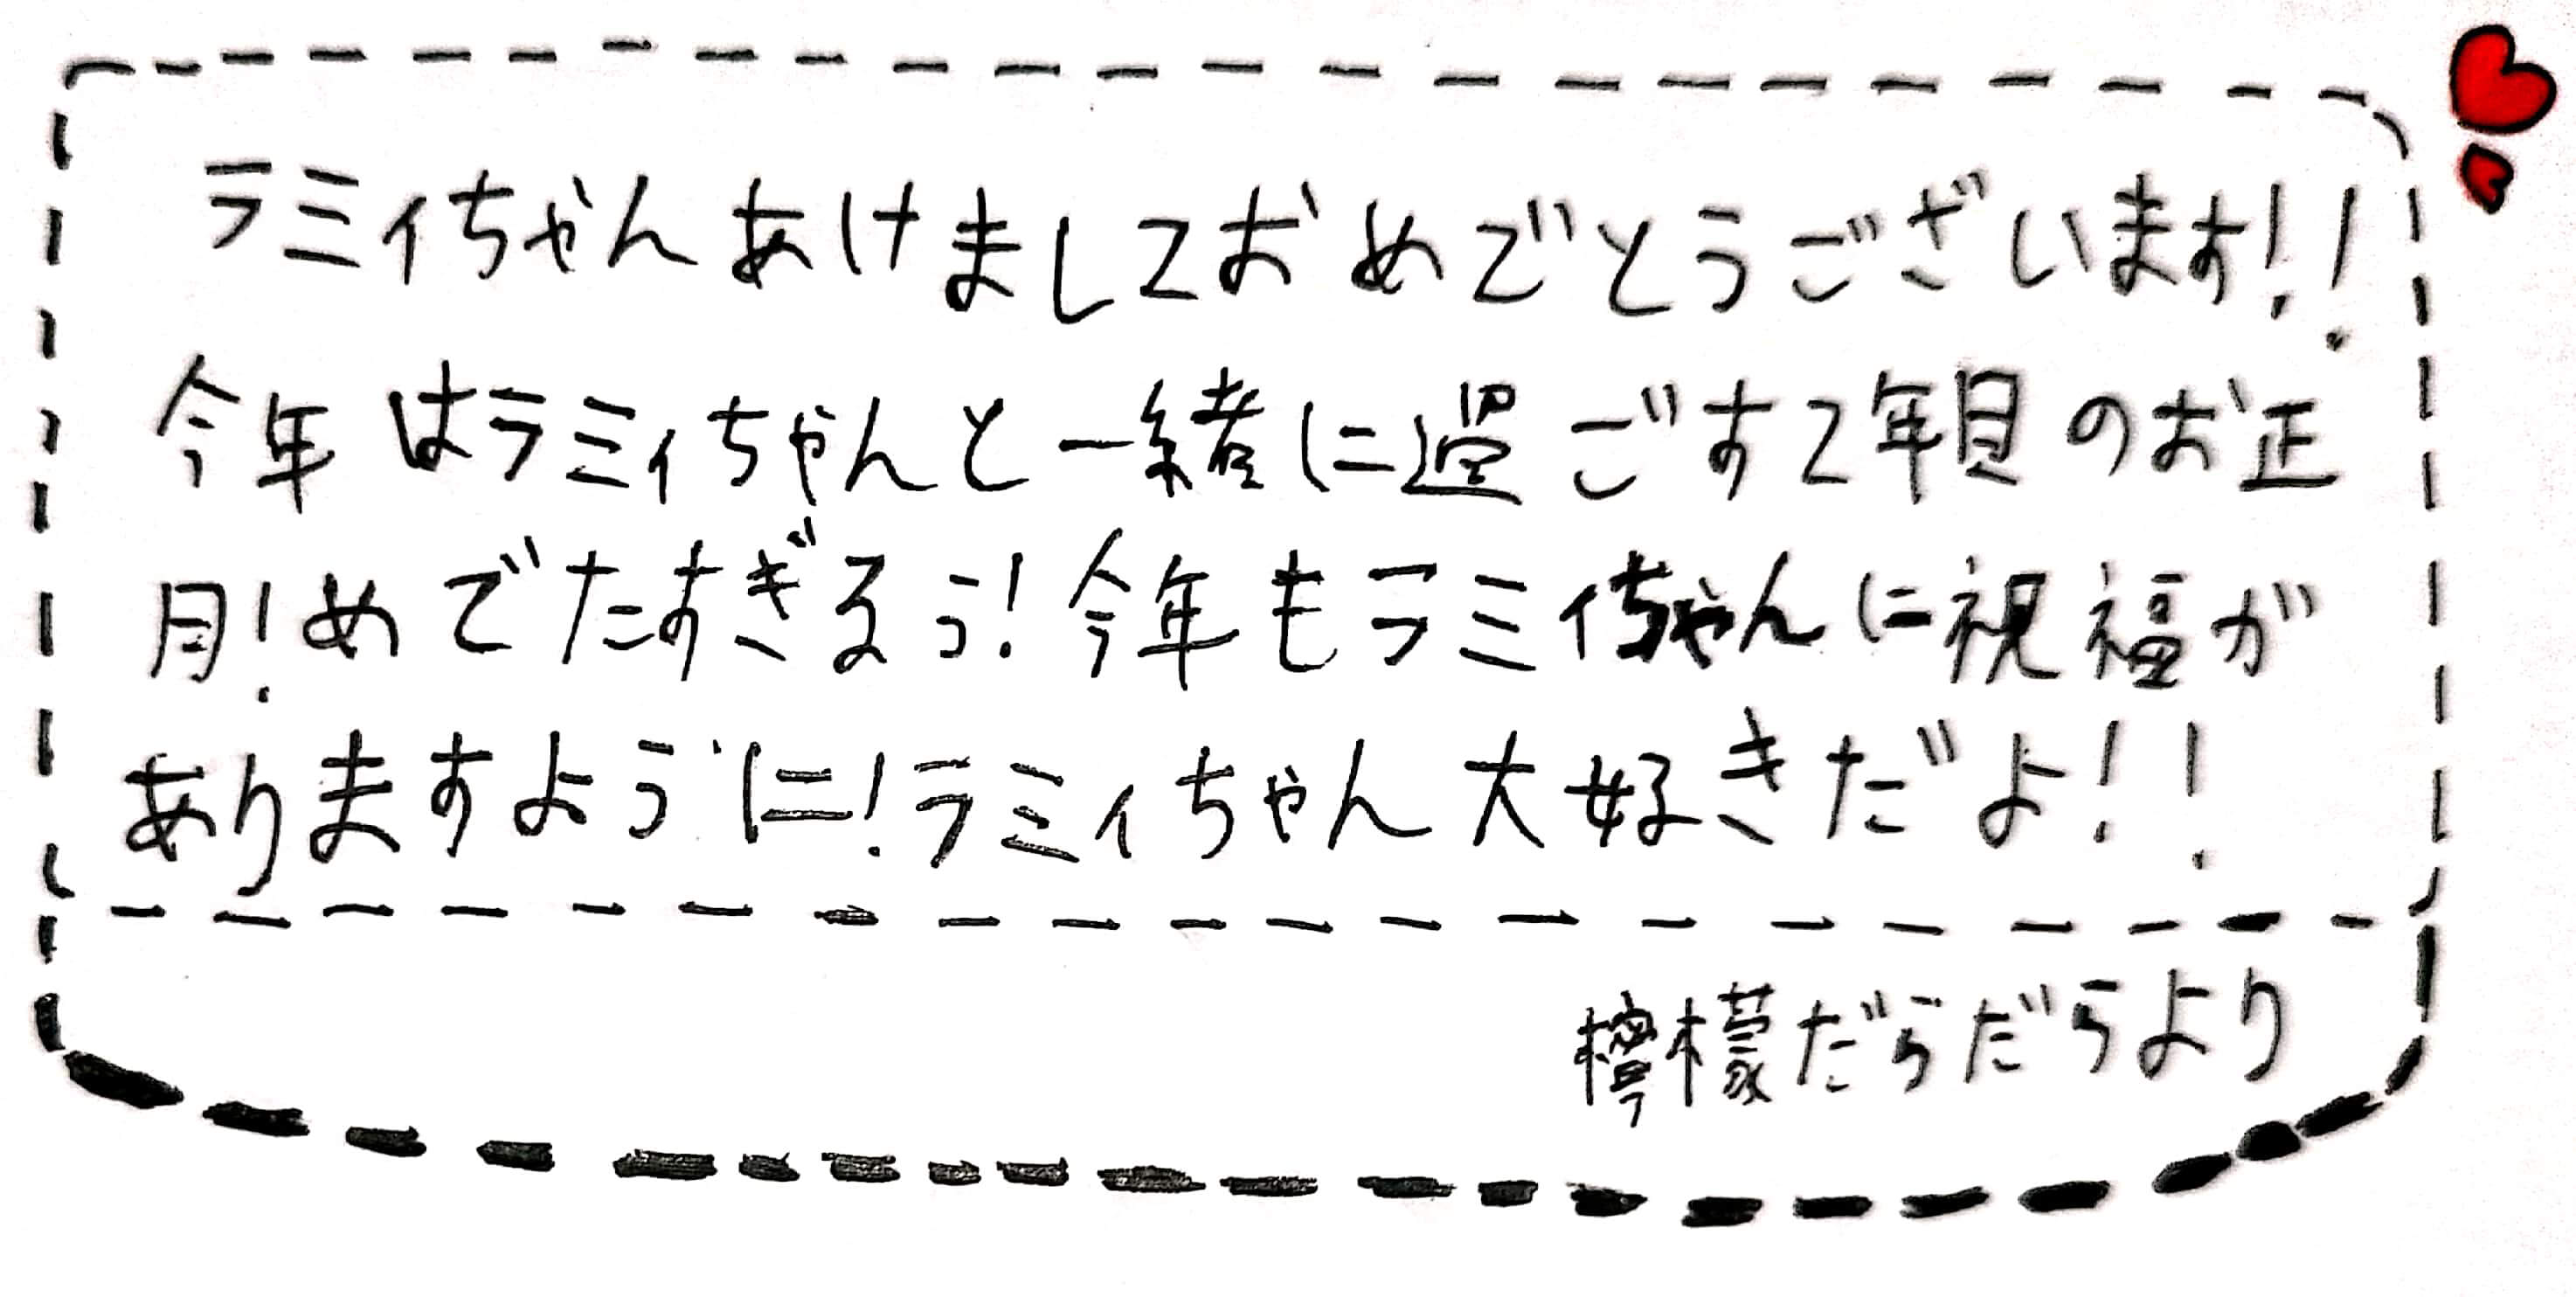 ラミィちゃんあけましておめでとうございます!!
今年はラミィちゃんと一緒に過ごす2年目のお正
月!めでたすぎるぅ!今年もラミィちゃんに祝福が
ありますように!ラミィちゃん大好きだよ!!
檸檬だらだらより